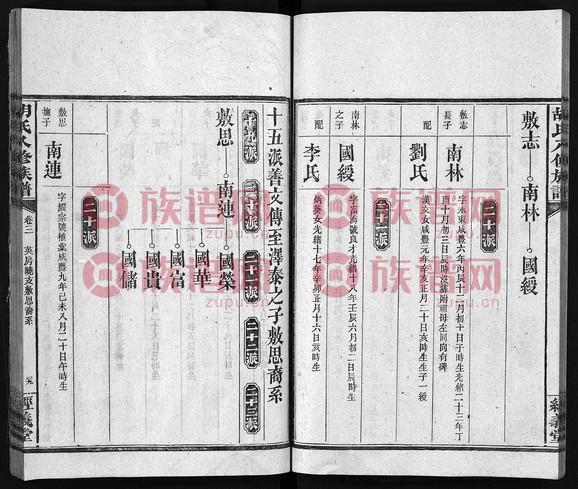 胡氏八修族譜
經義堂
敷志
南林
國綬
二十派
敷志
長子
南林
字永東咸豐六年丙辰十二月初十日子時生光緒二十三年丁
酉十月初三日辰時歿葬附祖母左同向有碑
配
劉氏
咸豐元年辛亥正月二十日亥時生生子一綬
二十一派
南林
之子
國綬
字富海號良才光緒十八年壬辰六月初二日辰時生
配
李氏
炳葵女光緒十七年辛卯正月十六日亥時生
十五派善文傳至澤泰之子敷思裔系
二十派
二十一派
二十二派
二十三派
敷思
南連
國榮
國華
國富
國貴
國儲
二十派
敷思
撫子
南連
字經宗號植棠咸豐九年己未八月二十日午時生
胡氏八修族譜
卷二
英房曉支敷思裔系
經義堂
族谱网
zupu.cn